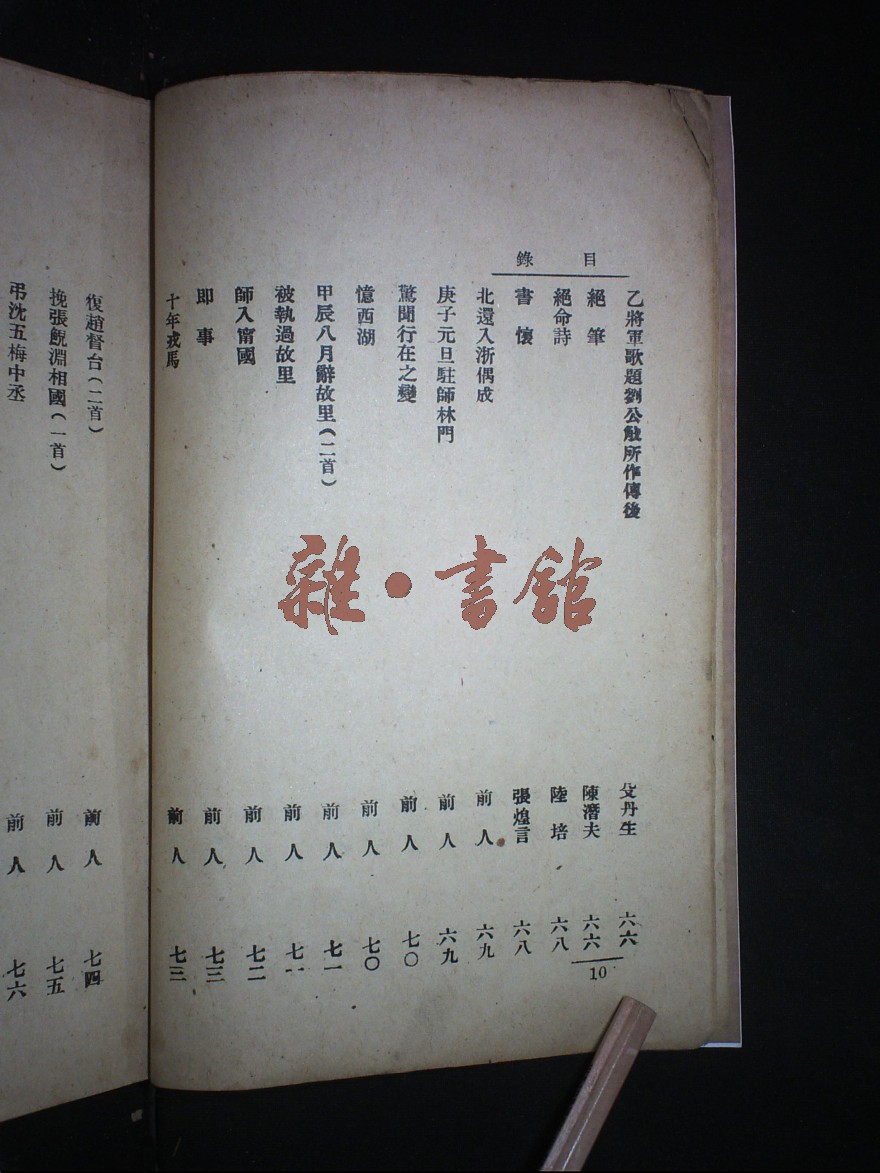 目錄
乙將軍歌題劉公㪍所作傳後 艾丹生 六六
絕筆 陳潛夫 六六
絕命詩 陸培 六八
書懷 張煌言 六八
北還入浙偶成 前人 六九
庚子元旦駐師林門 前人 六九
驚聞行在之變 前人 七〇
憶西湖 前人 七〇
甲辰八月辭故里(二首) 前人 七一
被執過故里 前人 七一
師入甯國 前人 七二
即事 前人 七三
十年戎馬 前人 七三
10
復趙督台(二首) 前人 七四
挽張鯢淵相國(一首) 前人 七五
弔沈五梅中丞 前人 七六
雜·書館